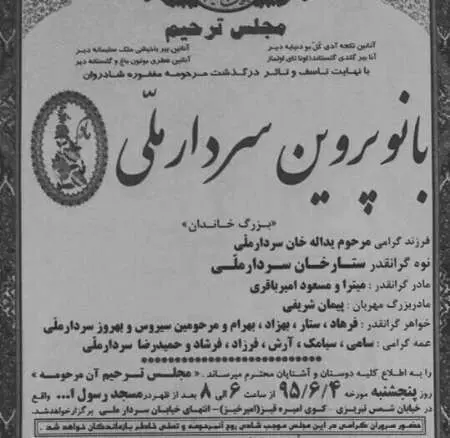 مجلس ترحیم
آنانین نئجه آدی گل بو دنیایه دیر
آنا بیر گلدی گلستاندا اونا تای اولماز
با نهایت تاسف و تاثر درگذشت مرحومه مغفوره شادروان
بانو پروین سردار ملّی
«بزرگ خاندان»
فرزند گرامی مرحوم یداله خان سردارملّی
نوه گرانقدر ستارخان سردارملّی
مادر گرانقدر: میترا و مسعود امیرباقری
مادربزرگ مهربان: پیمان شریفی
خواهر گرانقدر: فرهاد، ستار، بهزاد، بهرام و مرحومین سیروس و بهروز سردارملّی
عمه گرامی: سامی، سیامک، آرش، فرزاد، فرشاد و حمیدرضا سردارملّی
را به اطلاع کلیه دوستان و آشنایان محترم میرساند. «مجلس ترحیم آن مرحومه»
روز پنجشنبه مورخه ۹۵/۶/۴ از ساعت ۶ الی ۸ بعد از ظهر در مسجد رسول ا... واقع
در خیابان شمس تبریزی - کوی امیره قیز(امیرخیز) - انتهای خیابان سردار ملی برگزار خواهد شد.
حضور سروران گرامی در این مجلس موجب شادی روح آنمرحومه و تسلی خاطر بازماندگان خواهد شد.